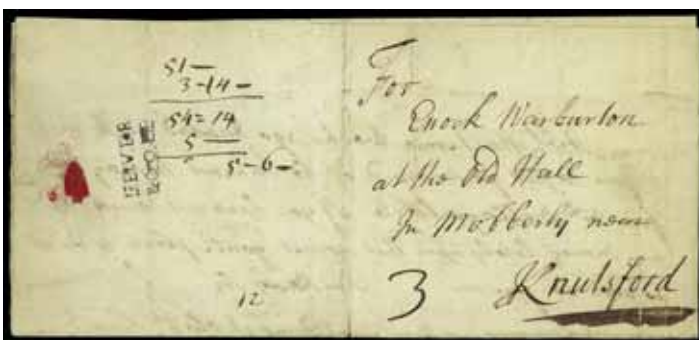 51 —
3-14 -
54 = 14
5 —
5-6-
12
For
Enock Warburton
at the Old Hall
In Mobberly near
Knutsford
3